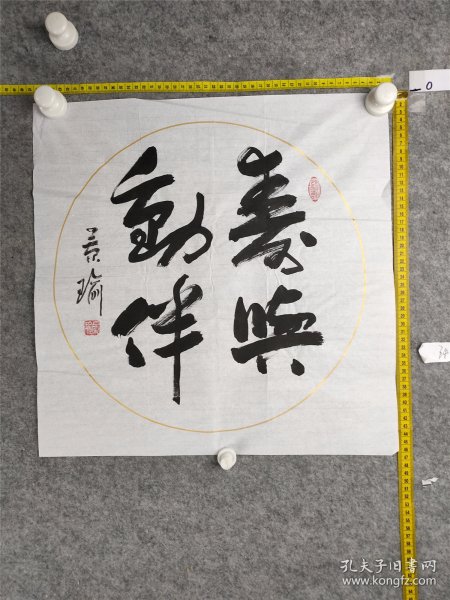 壽與
動伴
景瑜
0
孔夫子旧书网
www.kongfz.com